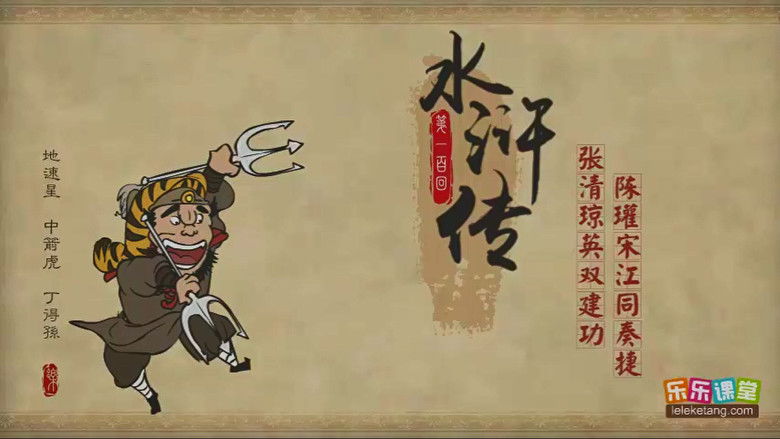 水浒传
第一百回
张清琼英双建功
陈瓘宋江同奏捷
地速星 中箭虎 丁得孫
乐乐课堂
leleketang.com